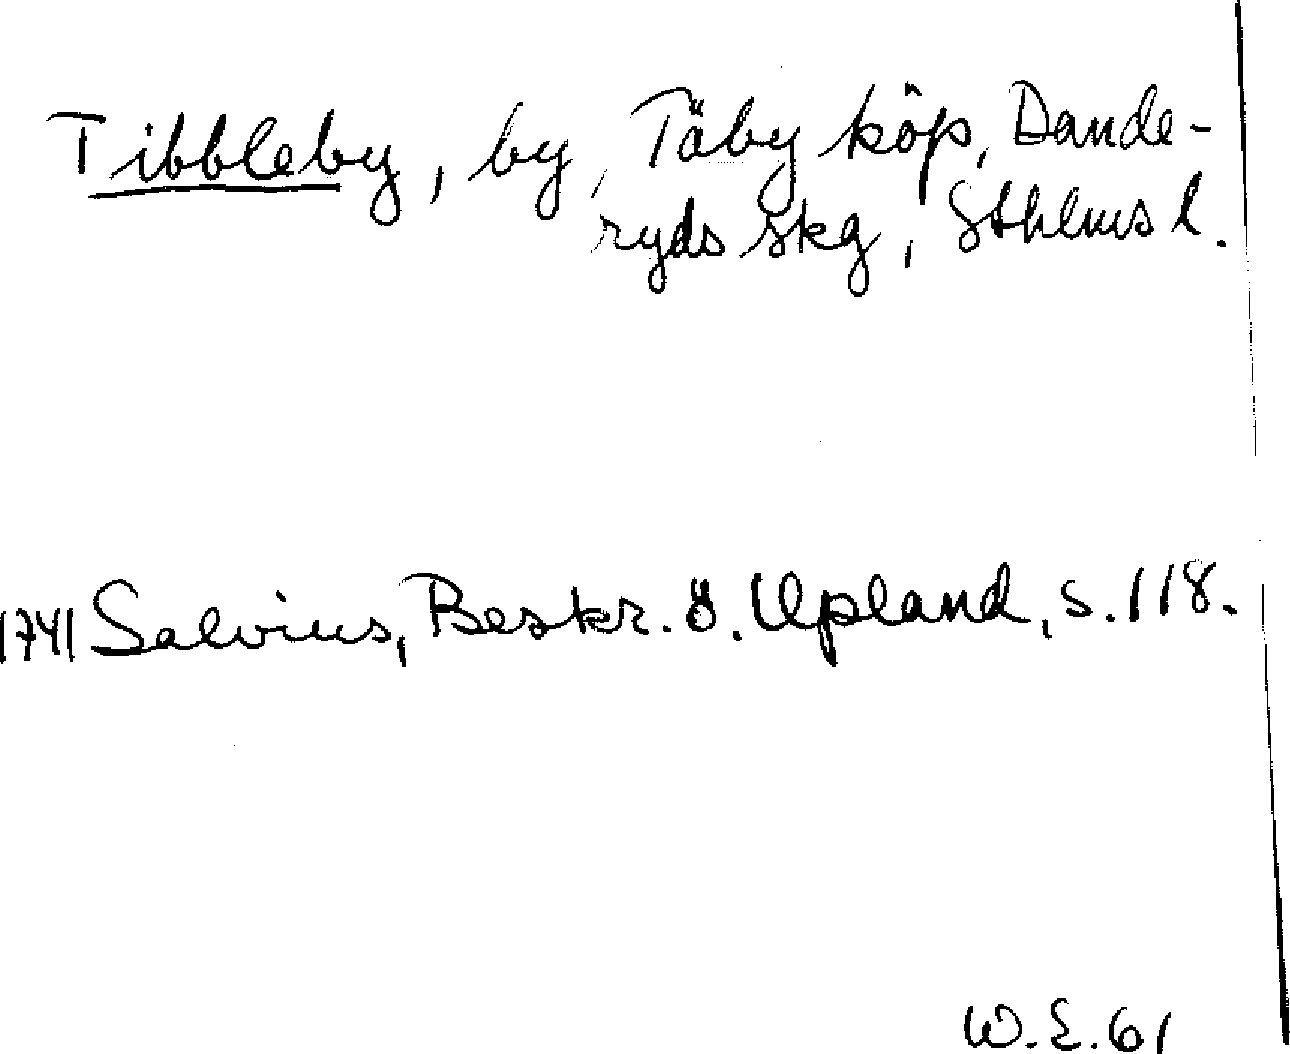 Tibbleby, by, Täby köp, Dande-
ryds skg, Sthlms l.
1741 Salvius, Beskr. ö. Upland, s. 118.
W.E. 61